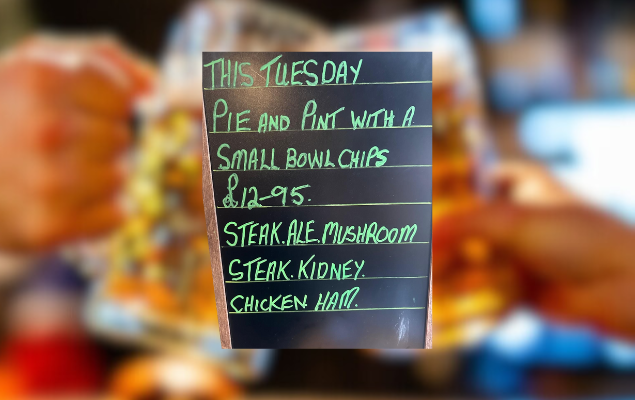 THIS TUESDAY
PIE AND PINT WITH A
SMALL BOWL CHIPS
£12-95.
STEAK.ALE.MUSHROOM
STEAK.KIDNEY.
CHICKEN HAM.